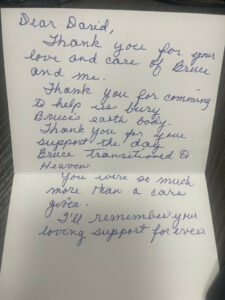 Dear David,
Thank you for your
love and care of Bruce
and me.
Thank you for comming
to help us bury
Bruce's earth body.
Thank you for your
support the day
Bruce transitioned to
Heaven
You were so much
more than a care
giver.
I'll remember your
loving support forever